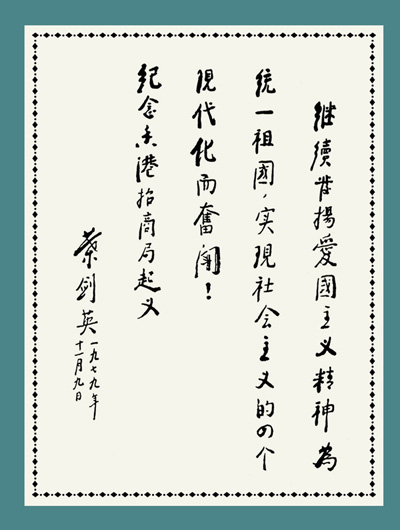 继續发揚愛國主义精神為
统一祖國，实现社会主义的四个
现代化而奮闘！
纪念香港招商局起义
蔡剑英
一九七九年
十一月九日